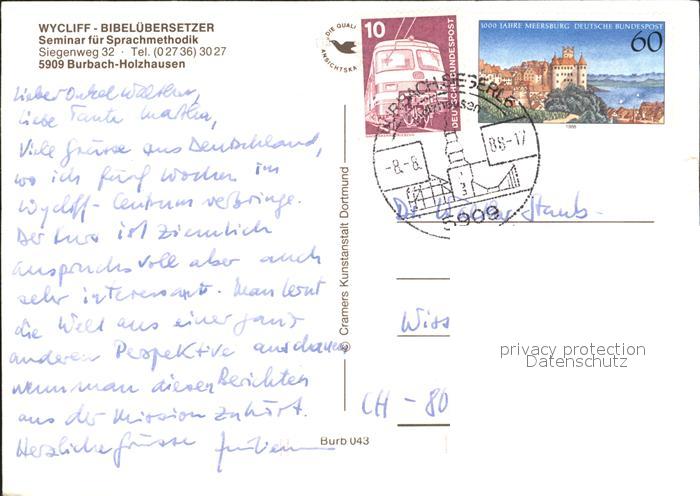 WYCLIFF - BIBELÜBERSETZER
Seminar für Sprachmethodik
Siegenweg 32 · Tel. (0 27 36) 30 27
5909 Burbach-Holzhausen
Lieber Onkel Walther,
liebe Tante Martha,
Viele Grüsse aus Deutschland,
wo ich fünf Wochen im
Wycliff-Centrum verbringe.
Der Kurs ist ziemlich
anspruchsvoll aber auch
sehr interessant. Man lernt
die Welt aus einer ganz
anderen Perspektive anschauen
wenn man diesen Berichten
aus der Mission zuhört.
Herzliche Grüsse
DIE QUALI
ANSICHTSKA
© Cramers Kunstanstalt Dortmund
Burb 043
10
DEUTSCHE BUNDESPOST
1000 JAHRE MEERSBURG DEUTSCHE BUNDESPOST
60
1988
-8.-8.
88-17
5909
Dr. Walther Staub-
Wiss
CH - 80
privacy protection
Datenschutz